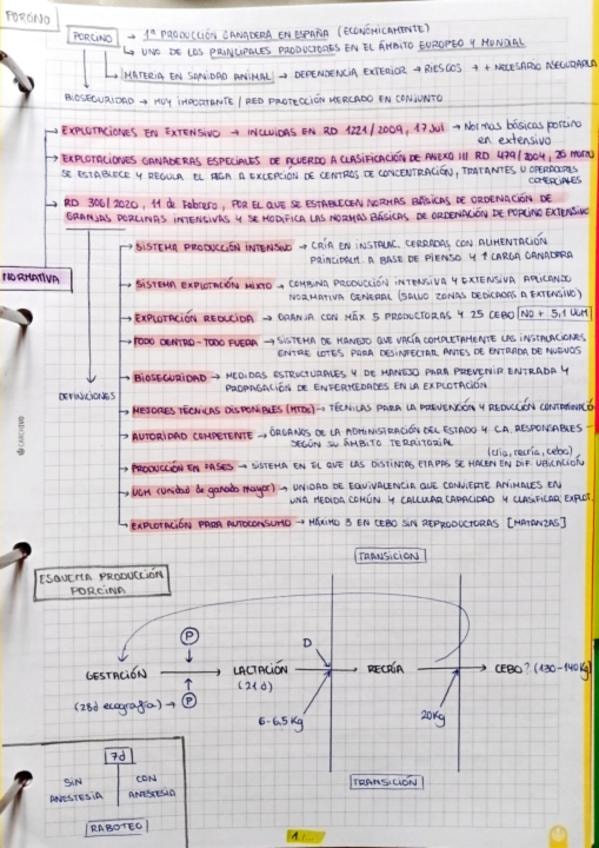 PORCINO
PORCINO → 1ª PRODUCCIÓN GANADERA EN ESPAÑA (ECONÓMICAMENTE)
↳ UNO DE LOS PRINCIPALES PRODUCTORES EN EL ÁMBITO EUROPEO Y MUNDIAL
MATERIA EN SANIDAD ANIMAL → DEPENDENCIA EXTERIOR → RIESGOS → + NECESARIO ASEGURARLA
BIOSEGURIDAD → MUY IMPORTANTE / RED PROTECCIÓN MERCADO EN CONJUNTO
EXPLOTACIONES EN EXTENSIVO → INCLUIDAS EN RD 1221/2009, 17 Jul → Normas básicas porcino
en extensivo
EXPLOTACIONES GANADERAS ESPECIALES DE ACUERDO A CLASIFICACIÓN DE ANEXO III RD 479/2004, 26 marzo
SE ESTABLECE Y REGULA EL REGA A EXCEPCIÓN DE CENTROS DE CONCENTRACIÓN, TRATANTES U OPERADORES
COMERCIALES
RD 306/2020, 11 de Febrero, POR EL QUE SE ESTABLECEN NORMAS BÁSICAS DE ORDENACIÓN DE
GRANJAS PORCINAS INTENSIVAS Y SE MODIFICA LAS NORMAS BÁSICAS DE ORDENACIÓN DE PORCINO EXTENSIVO
NORMATIVA
SISTEMA PRODUCCIÓN INTENSIVO → CRÍA EN INSTALAC. CERRADAS CON ALIMENTACIÓN
PRINCIPALM. A BASE DE PIENSO Y ↑ CARGA GANADERA
SISTEMA EXPLOTACIÓN MIXTO → COMBINA PRODUCCIÓN INTENSIVA Y EXTENSIVA APLICANDO
NORMATIVA GENERAL (SALVO ZONAS DEDICADAS A EXTENSIVO)
EXPLOTACIÓN REDUCIDA → GRANJA CON MÁX 5 PRODUCTORAS Y 25 CEBO [NO + 5,1 UGM]
TODO DENTRO-TODO FUERA → SISTEMA DE MANEJO QUE VACÍA COMPLETAMENTE LAS INSTALACIONES
ENTRE LOTES PARA DESINFECTAR ANTES DE ENTRADA DE NUEVOS
BIOSEGURIDAD → MEDIDAS ESTRUCTURALES Y DE MANEJO PARA PREVENIR ENTRADA Y
PROPAGACIÓN DE ENFERMEDADES EN LA EXPLOTACIÓN
DEFINICIONES
MEJORES TÉCNICAS DISPONIBLES (MTDs) → TÉCNICAS PARA LA PREVENCIÓN Y REDUCCIÓN CONTAMINACIÓ
AUTORIDAD COMPETENTE → ÓRGANOS DE LA ADMINISTRACIÓN DEL ESTADO Y CA. RESPONSABLES
SEGÚN SU ÁMBITO TERRITORIAL
(cría, recría, cebo)
PRODUCCIÓN EN FASES → SISTEMA EN EL QUE LAS DISTINTAS ETAPAS SE HACEN EN DIF. UBICACIÓN
UGM (unidad de ganado mayor) → UNIDAD DE EQUIVALENCIA QUE CONVIERTE ANIMALES EN
UNA MEDIDA COMÚN Y CALCULAR CAPACIDAD Y CLASIFICAR EXPLOT.
EXPLOTACIÓN PARA AUTOCONSUMO → MÁXIMO 3 EN CEBO SIN REPRODUCTORAS [MATANZAS]
CARCHIVO
ESQUEMA PRODUCCIÓN
PORCINA
TRANSICION
P
D
GESTACIÓN → LACTACIÓN → RECRÍA → CEBO? (130-140Kg)
(21 d)
(28d ecografía) → P
6-6,5Kg
20Kg
7d
SIN
ANESTESIA
CON
ANESTESIA
RABOTEO
TRANSICIÓN
1